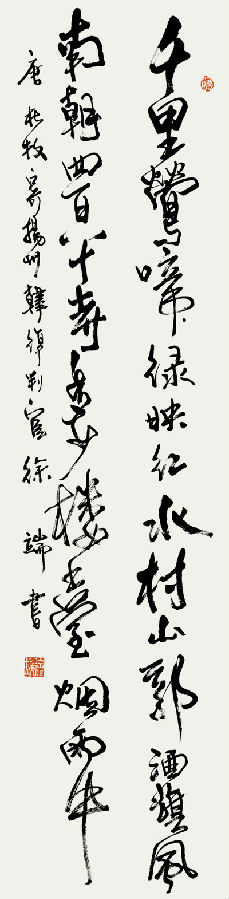 千里鶯啼緑映红水村山郭酒旗風
南朝四百八十寺多少楼臺烟雨中
唐杜牧寄揚州韓綽判官徐端書